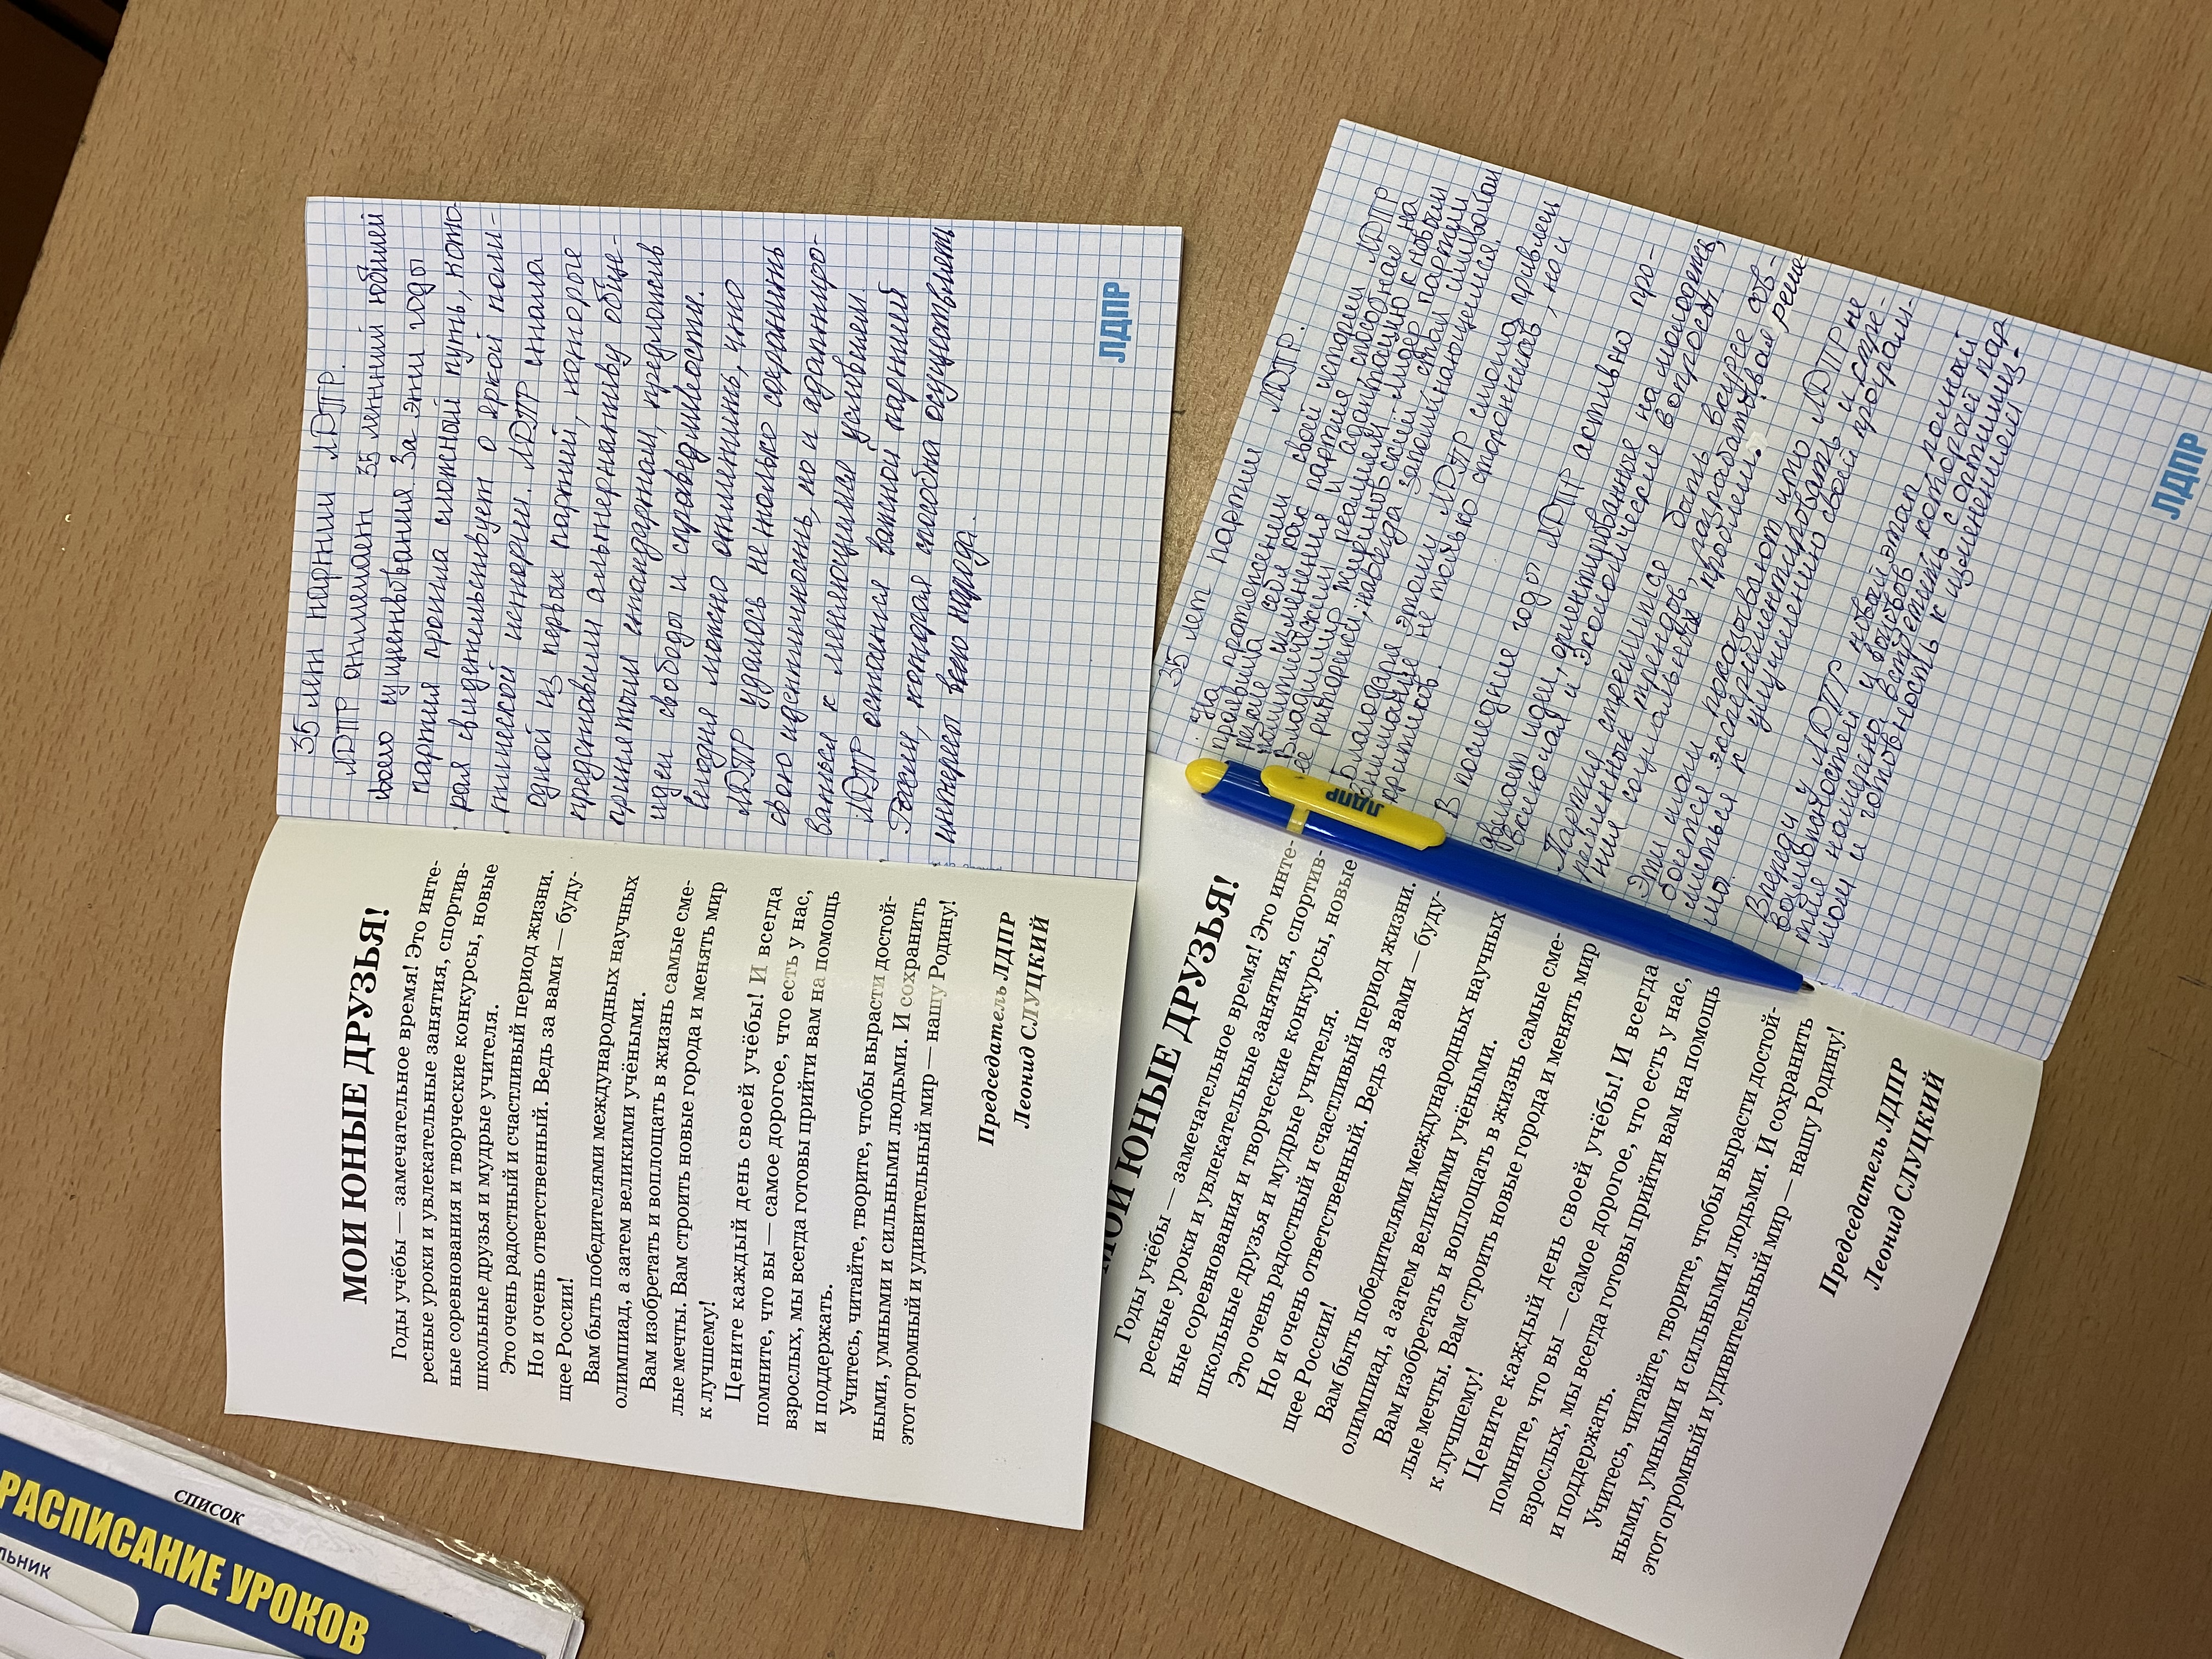 МОИ ЮНЫЕ ДРУЗЬЯ!
Годы учёбы — замечательное время! Это инте-
ресные уроки и увлекательные занятия, спортив-
ные соревнования и творческие конкурсы, новые
школьные друзья и мудрые учителя.
Это очень радостный и счастливый период жизни.
Но и очень ответственный. Ведь за вами — буду-
щее России!
Вам быть победителями международных научных
олимпиад, а затем великими учёными.
Вам изобретать и воплощать в жизнь самые сме-
лые мечты. Вам строить новые города и менять мир
к лучшему!
Цените каждый день своей учёбы! И всегда
помните, что вы — самое дорогое, что есть у нас,
взрослых, мы всегда готовы прийти вам на помощь
и поддержать.
Учитесь, читайте, творите, чтобы вырасти достой-
ными, умными и сильными людьми. И сохранить
этот огромный и удивительный мир — нашу Родину!
Председатель ЛДПР
Леонид СЛУЦКИЙ
35 лет партии ЛДПР.
ЛДПР отмечает 35 летний юбилей
своего существования За эти годы
партия прошла сложный путь, кото-
рая свидетельствует о яркой поли-
тической истории. ЛДПР стала
одной из первых партий, которые
представили альтернативу обще-
принятым стандартам, предложив
идеи свободы и справедливости.
Сегодня можно отметить, что
ЛДПР удалось не только сохранить
свою идентичность, но и адаптиро-
ваться к меняющимся условиям.
ЛДПР остается важной партией
России, которая способна осуществлять
интересы всего народа.
ЛДПР
МОИ ЮНЫЕ ДРУЗЬЯ!
Годы учёбы — замечательное время! Это инте-
ресные уроки и увлекательные занятия, спортив-
ные соревнования и творческие конкурсы, новые
школьные друзья и мудрые учителя.
Это очень радостный и счастливый период жизни.
Но и очень ответственный. Ведь за вами — буду-
щее России!
Вам быть победителями международных научных
олимпиад, а затем великими учёными.
Вам изобретать и воплощать в жизнь самые сме-
лые мечты. Вам строить новые города и менять мир
к лучшему!
Цените каждый день своей учёбы! И всегда
помните, что вы — самое дорогое, что есть у нас,
взрослых, мы всегда готовы прийти вам на помощь
и поддержать.
Учитесь, читайте, творите, чтобы вырасти достой-
ными, умными и сильными людьми. И сохранить
этот огромный и удивительный мир — нашу Родину!
Председатель ЛДПР
Леонид СЛУЦКИЙ
35 лет партии ЛДПР.
На протяжении своей истории ЛДПР
проявила себя как партия способная на
изменения и адаптацию к новым
политическим реалиям лидер партии
Владимир Жириновский стал символом
ее риторики, навсегда запоминающемся.
Благодаря этому ЛДПР смогла привлечь
внимание не только сторонников, но и
критиков.
В последние годы ЛДПР активно про-
двигает идеи, ориентированные на молодежь,
включая и экологические вопросы.
Партия стремится быть в курсе сов-
ременных трендов, разрабатывая реше-
ния социальных проблем.
Эти шаги показывают что ЛДПР не
боится экспериментировать и стре-
миться к улучшению своей програм-
мы.
Впереди у ЛДПР новый этап полный
возможностей и вызовов которые пар-
тия намерена встретить с оптимиз-
мом и готовность к изменениям
ЛДПР
ЛДПР
РАСПИСАНИЕ УРОКОВ
СПИСОК